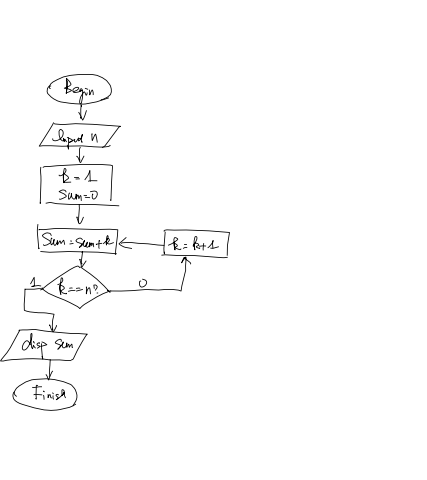 Begin
Input n
k = 1
Sum=0
Sum=Sum+k
k = k+1
k==n?
1
0
disp sum
Finish